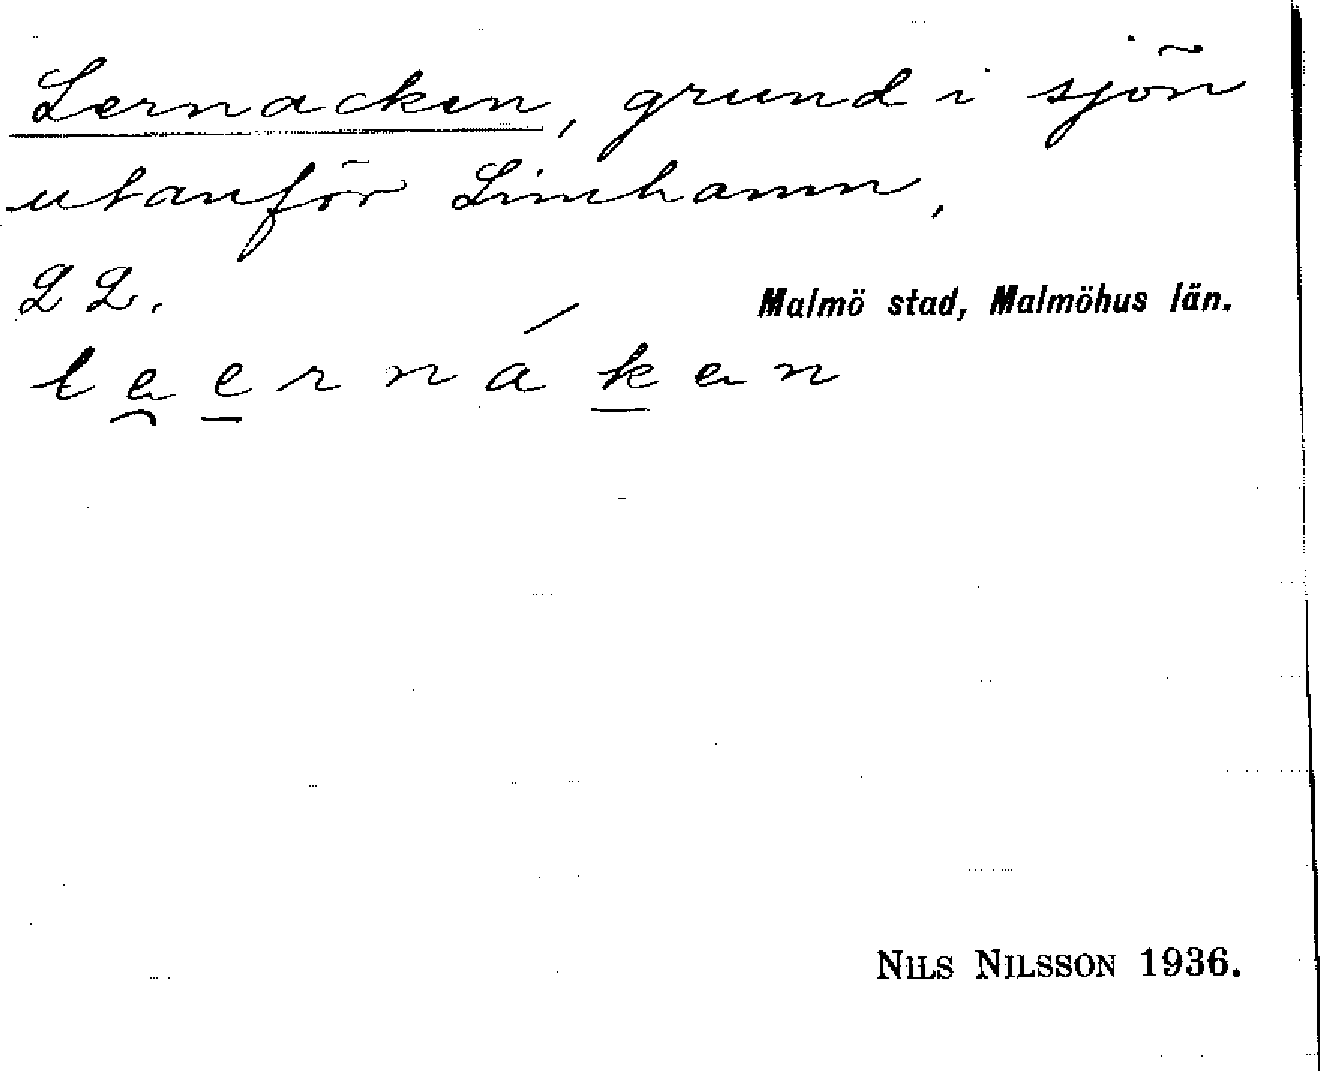 Lernacken, grund i sjön
utanför Limhamn,
LL.
Malmö stad, Malmöhus län.
NILS NILSSON 1936.